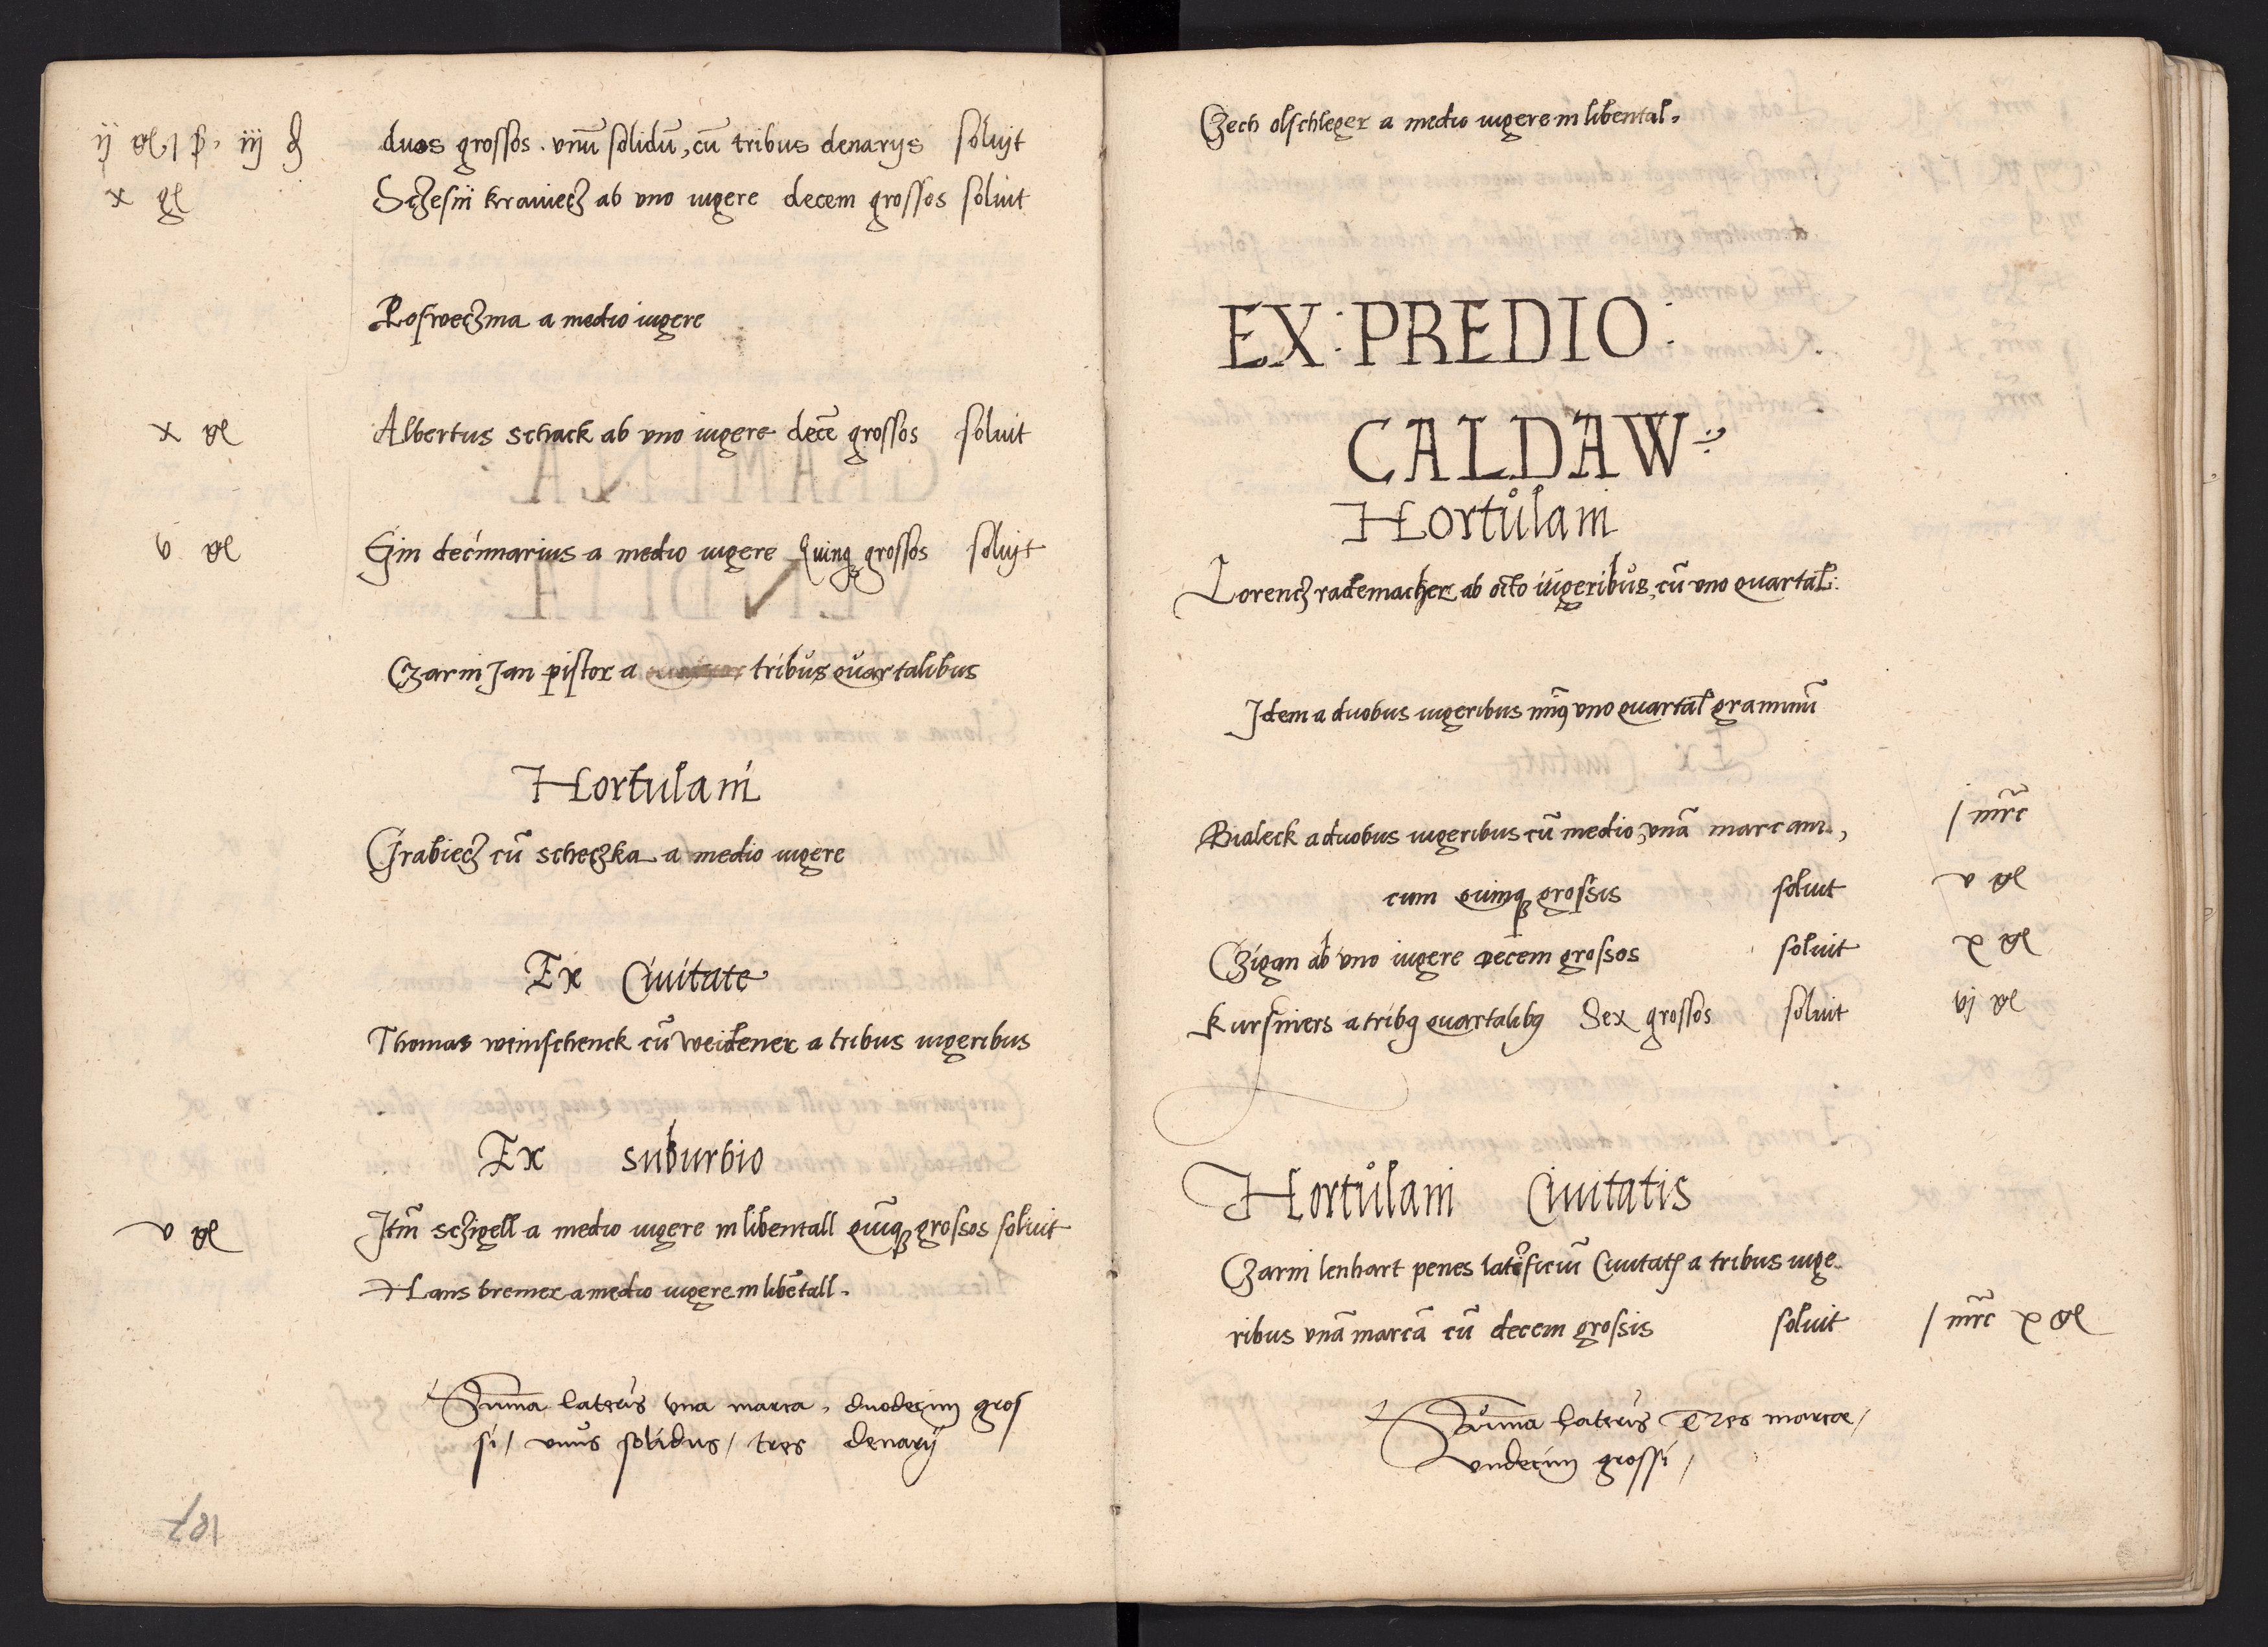 ij gl, j ß, iij ₰ duos grossos. vnū solidū, cū tribus denarijs soluit
x gl Sczesni krawiecz ab vno iugere decem grossos soluit
Rosweczma a medio iugere
x gl Albertus schack ab vno iugere decē grossos soluit
v gl Gin decimarius a medio iugere Quinqꝫ grossos soluit
Czarni Jan pistor a tribus quartalibus
Hortulani
Grabiecz cū scheczka a medio iugere
Ex Ciuitate
Thomas weinschenck cū weidener a tribus iugeribus
Ex suburbio
v gl Itm̄ sczigell a medio iugere in libentall quīqꝫ grossos soluit
Hans bremer a medio iugere in libētall.
Sum̄a lateris vna marca, duodecim gros
si / vnus solidus / tres denarij
187
Czech olschleger a medio iugere in libental.
EX : PREDIO :
CALDAW
Hortůlani
Lorencz rademacher ab octo iugeribus, cū vno quartal:
Idem a duobus iugeribus min9 vno quartal graminū
Bialeck a duobus iugeribus cū medio, vnā marcam, / mrc̄
cum quinqꝫ grossis soluit v gl
Czigan ab vno iugere decem grossos soluit x gl
kursiners a trib9 quartalib9 Sex grossos soluit vj gl
Hortůlani Ciuitatis
Czarni lenhart penes lateficiū Ciuitatꝭ a tribus iuge
ribus vnā marcā cū decem grossis soluit / mrc̄ x gl
Sum̄a lateris Tres marcae /
vndecim grossi /